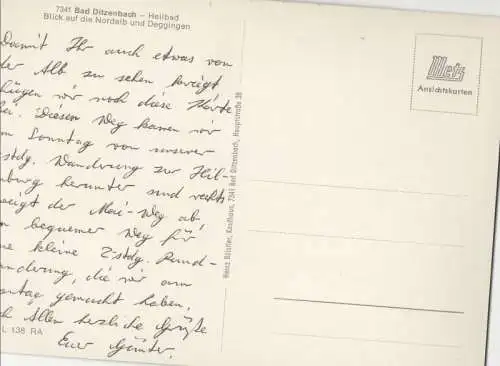 7341 Bad Ditzenbach – Heilbad
Blick auf die Nordalb und Deggingen
Damit Ihr auch etwas von
der Alb zu sehen kriegt
fügen wir noch diese Karte
Diesen Weg kamen wir
Sonntag von unserer
stdg. Wanderung zur Hil-
burg herunter und rechts
zweigt der Mai-Weg ab
bequemer Weg für
eine kleine 2-stdg. Rund-
wanderung, die wir am
gemacht haben.
Allen herzliche Grüße
Euer Günter.
L 138 RA
Heinz Bölstler, Kaufhaus, 7341 Bad Ditzenbach, Hauptstraße 38
Metz
Ansichtskarten